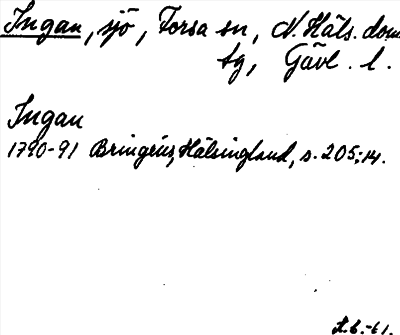 Ingan, sjö, Forsa sn, N. Häls. doms
tg, Gävl. l.
Ingan
1790-91 Bringéus, Hälsingland, s. 205; 14.